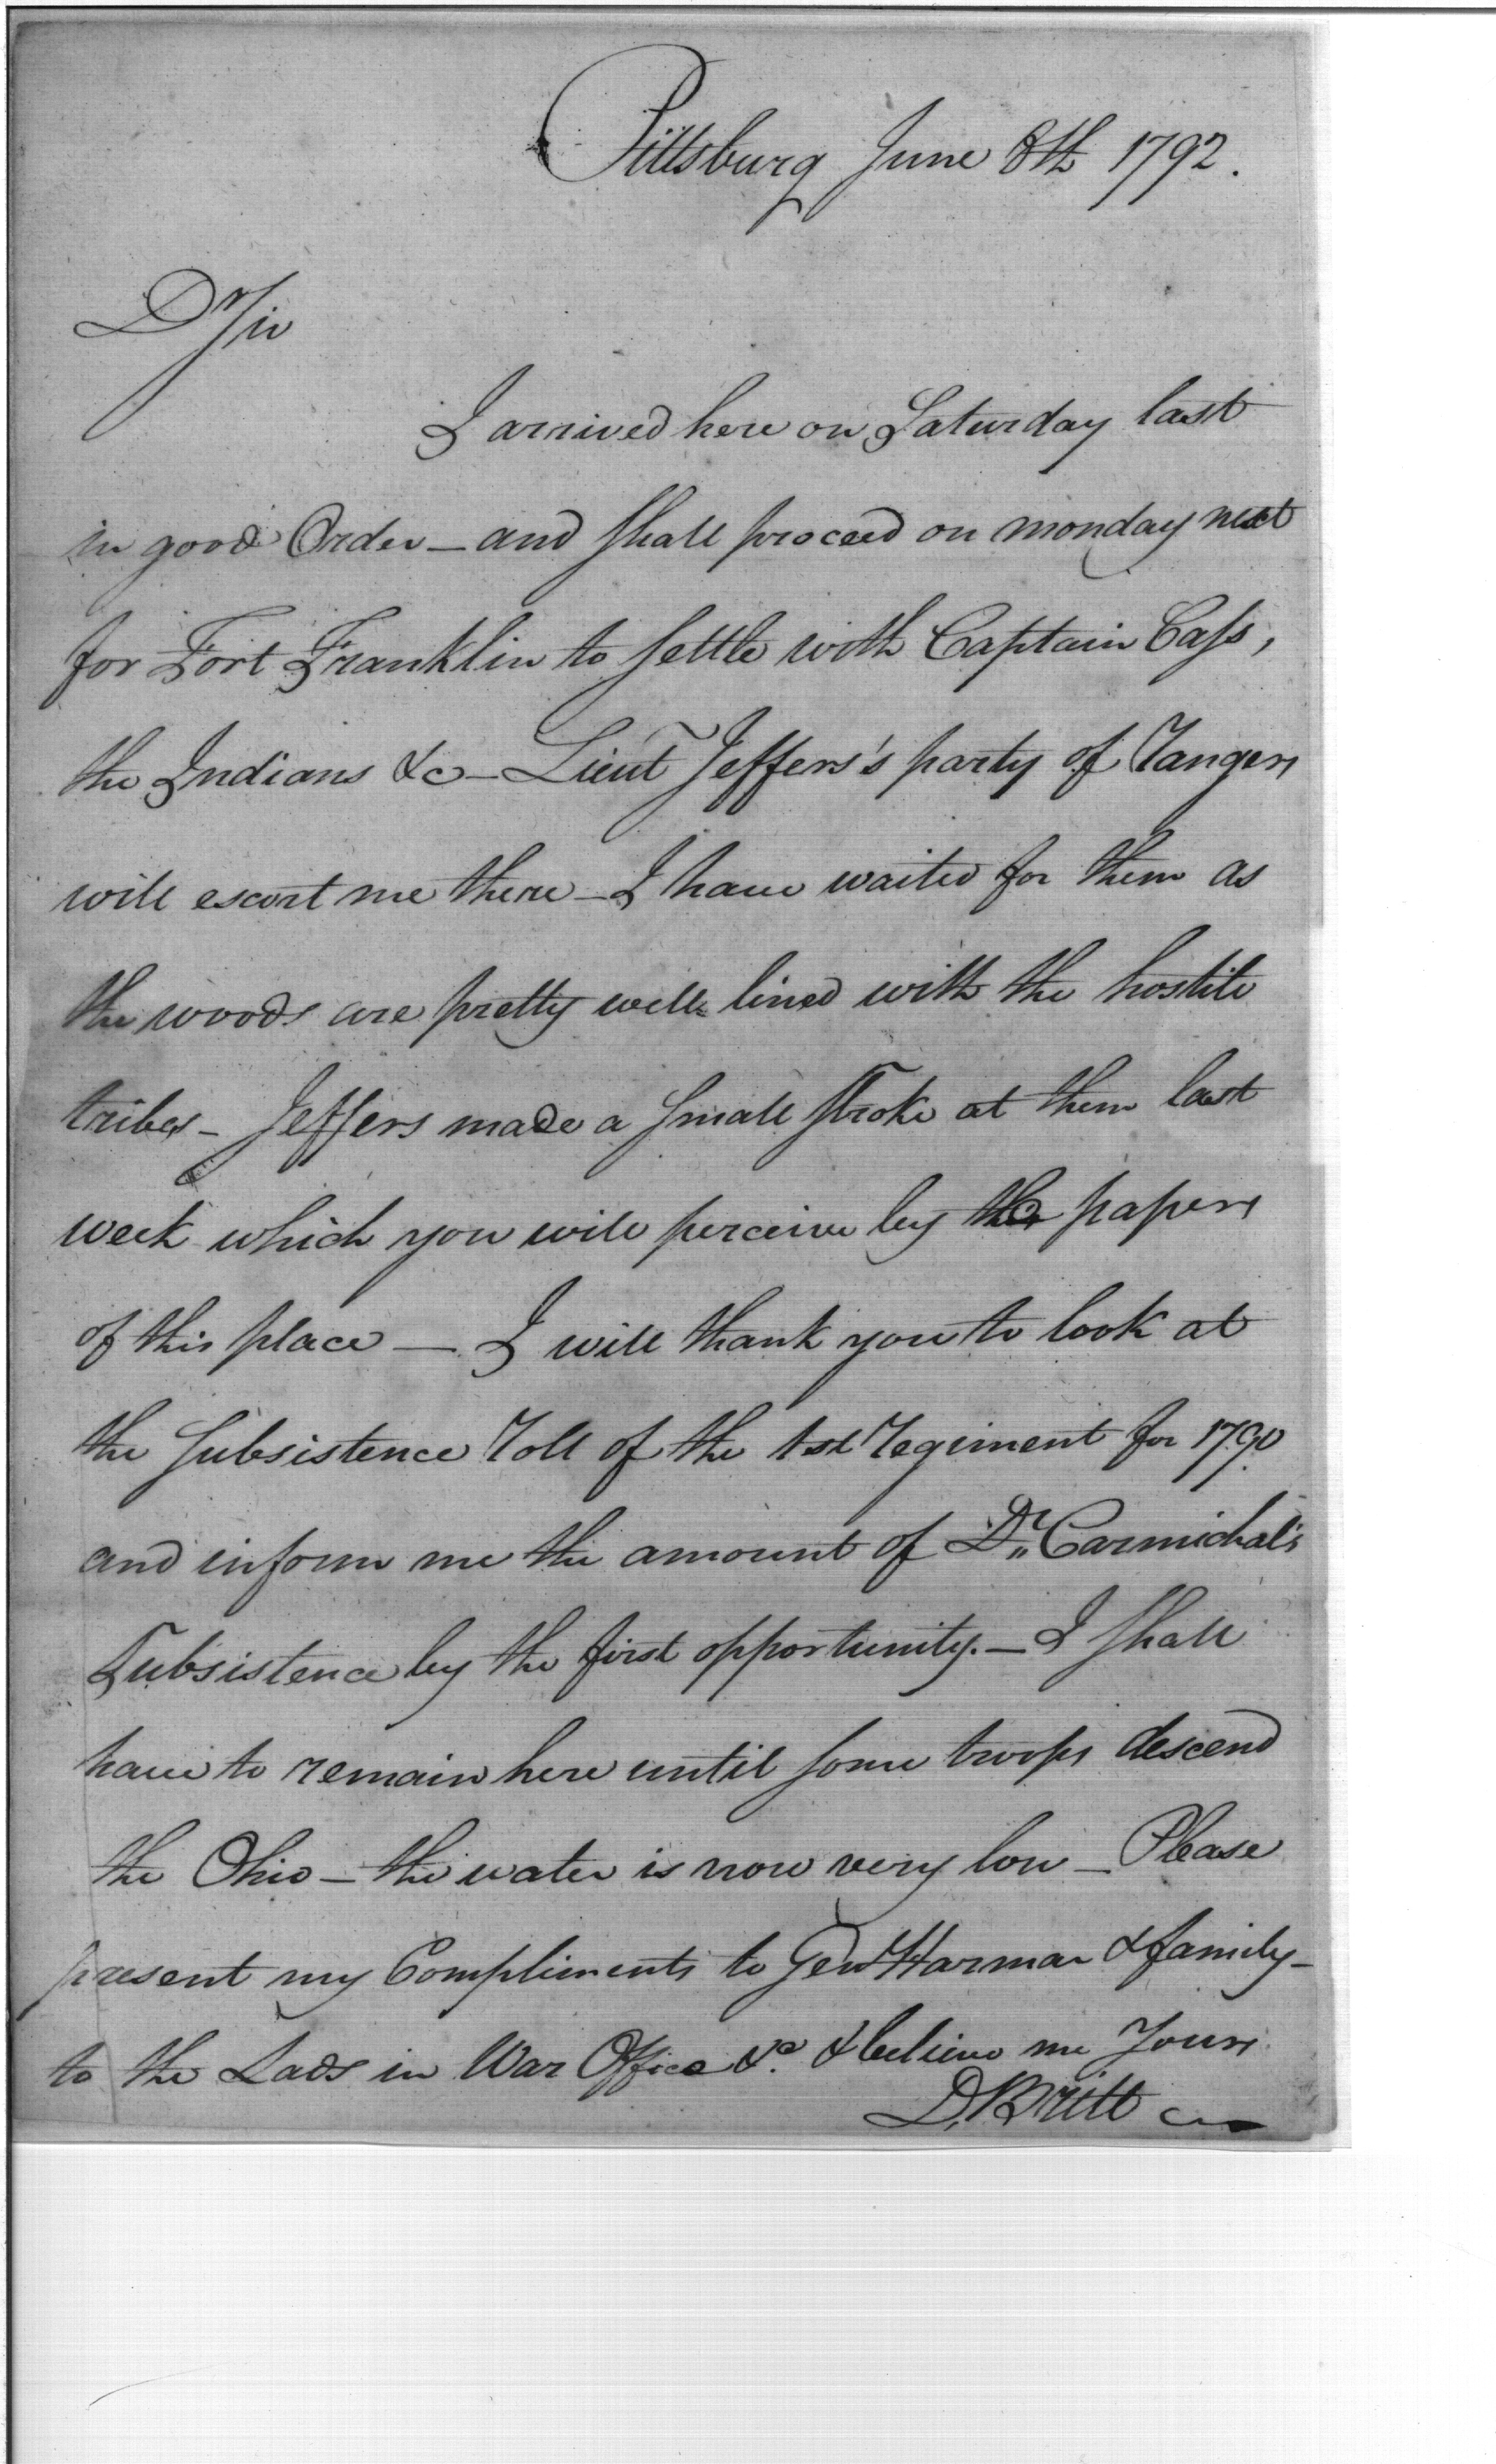 Pittsburg June 8th 1792.
Dr Sir
I arrived here on Saturday last
in good Order — and shall proceed on monday next
for Fort Franklin to settle with Captain Cass,
the Indians &c — Lieut Jeffers's party of Rangers
will escort me there — I have waited for them as
the woods are pretty well lined with the hostile
tribes — Jeffers made a small stroke at them last
week which you will perceive by the papers
of this place — I will thank you to look at
the Subsistence Roll of the 1st Regiment for 1790
and inform me the amount of Dr Carmichal's
Subsistence by the first opportunity. — I shall
have to remain here until some troops descend
the Ohio — the water is now very low — Please
present my Compliments to Genl Harmar & family —
to the Lads in War Office &c. & believe me Yours
D, Britt